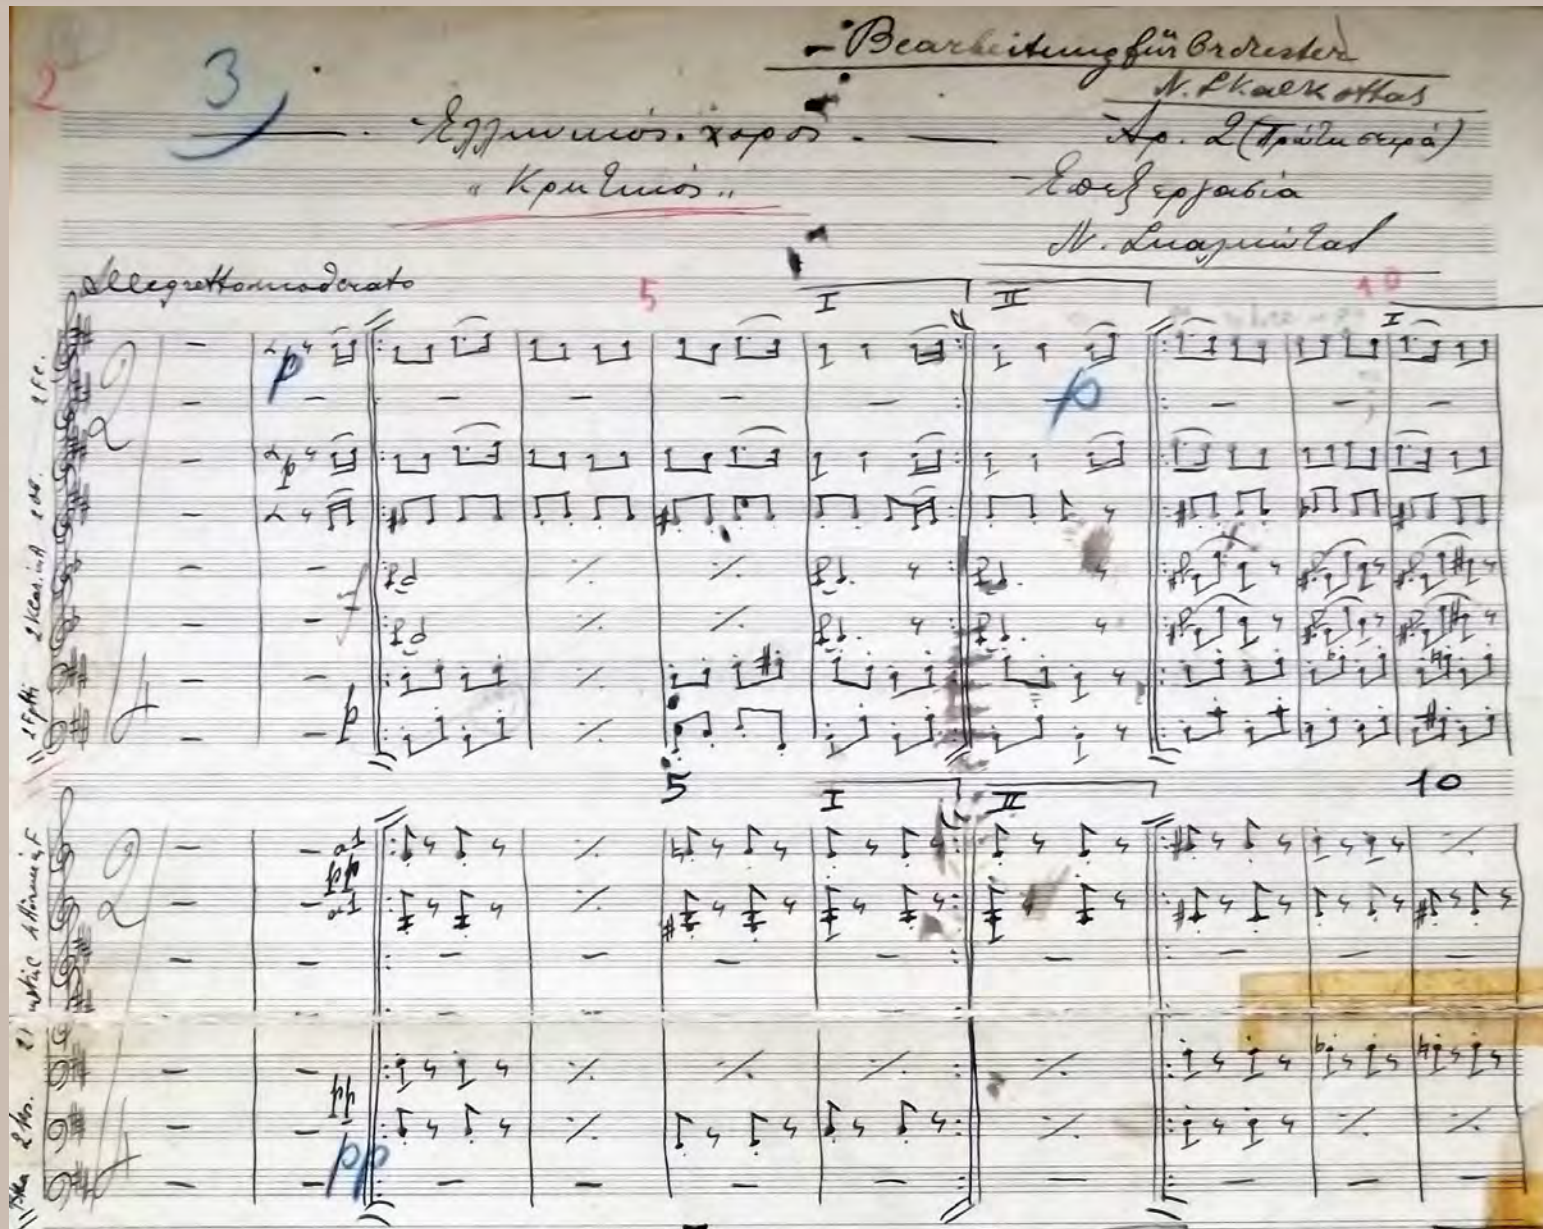 Bearbeitung für Orchester
N. Skalkottas
2
3
Ἑλληνικός χορός
Αρ. 2 (Πρώτη σειρά)
„Κρητικός„
Επεξεργασία
Ν. Σκαλκώτας
Allegretto moderato
5
I
II
10
I
2 Fl.
2 Ob.
2 Klar. in A
2 Fgtti
2
4
p
p
p
f
p
5
I
II
10
4 Hörner in F
2
4
1o
pp
1o
pp
pp